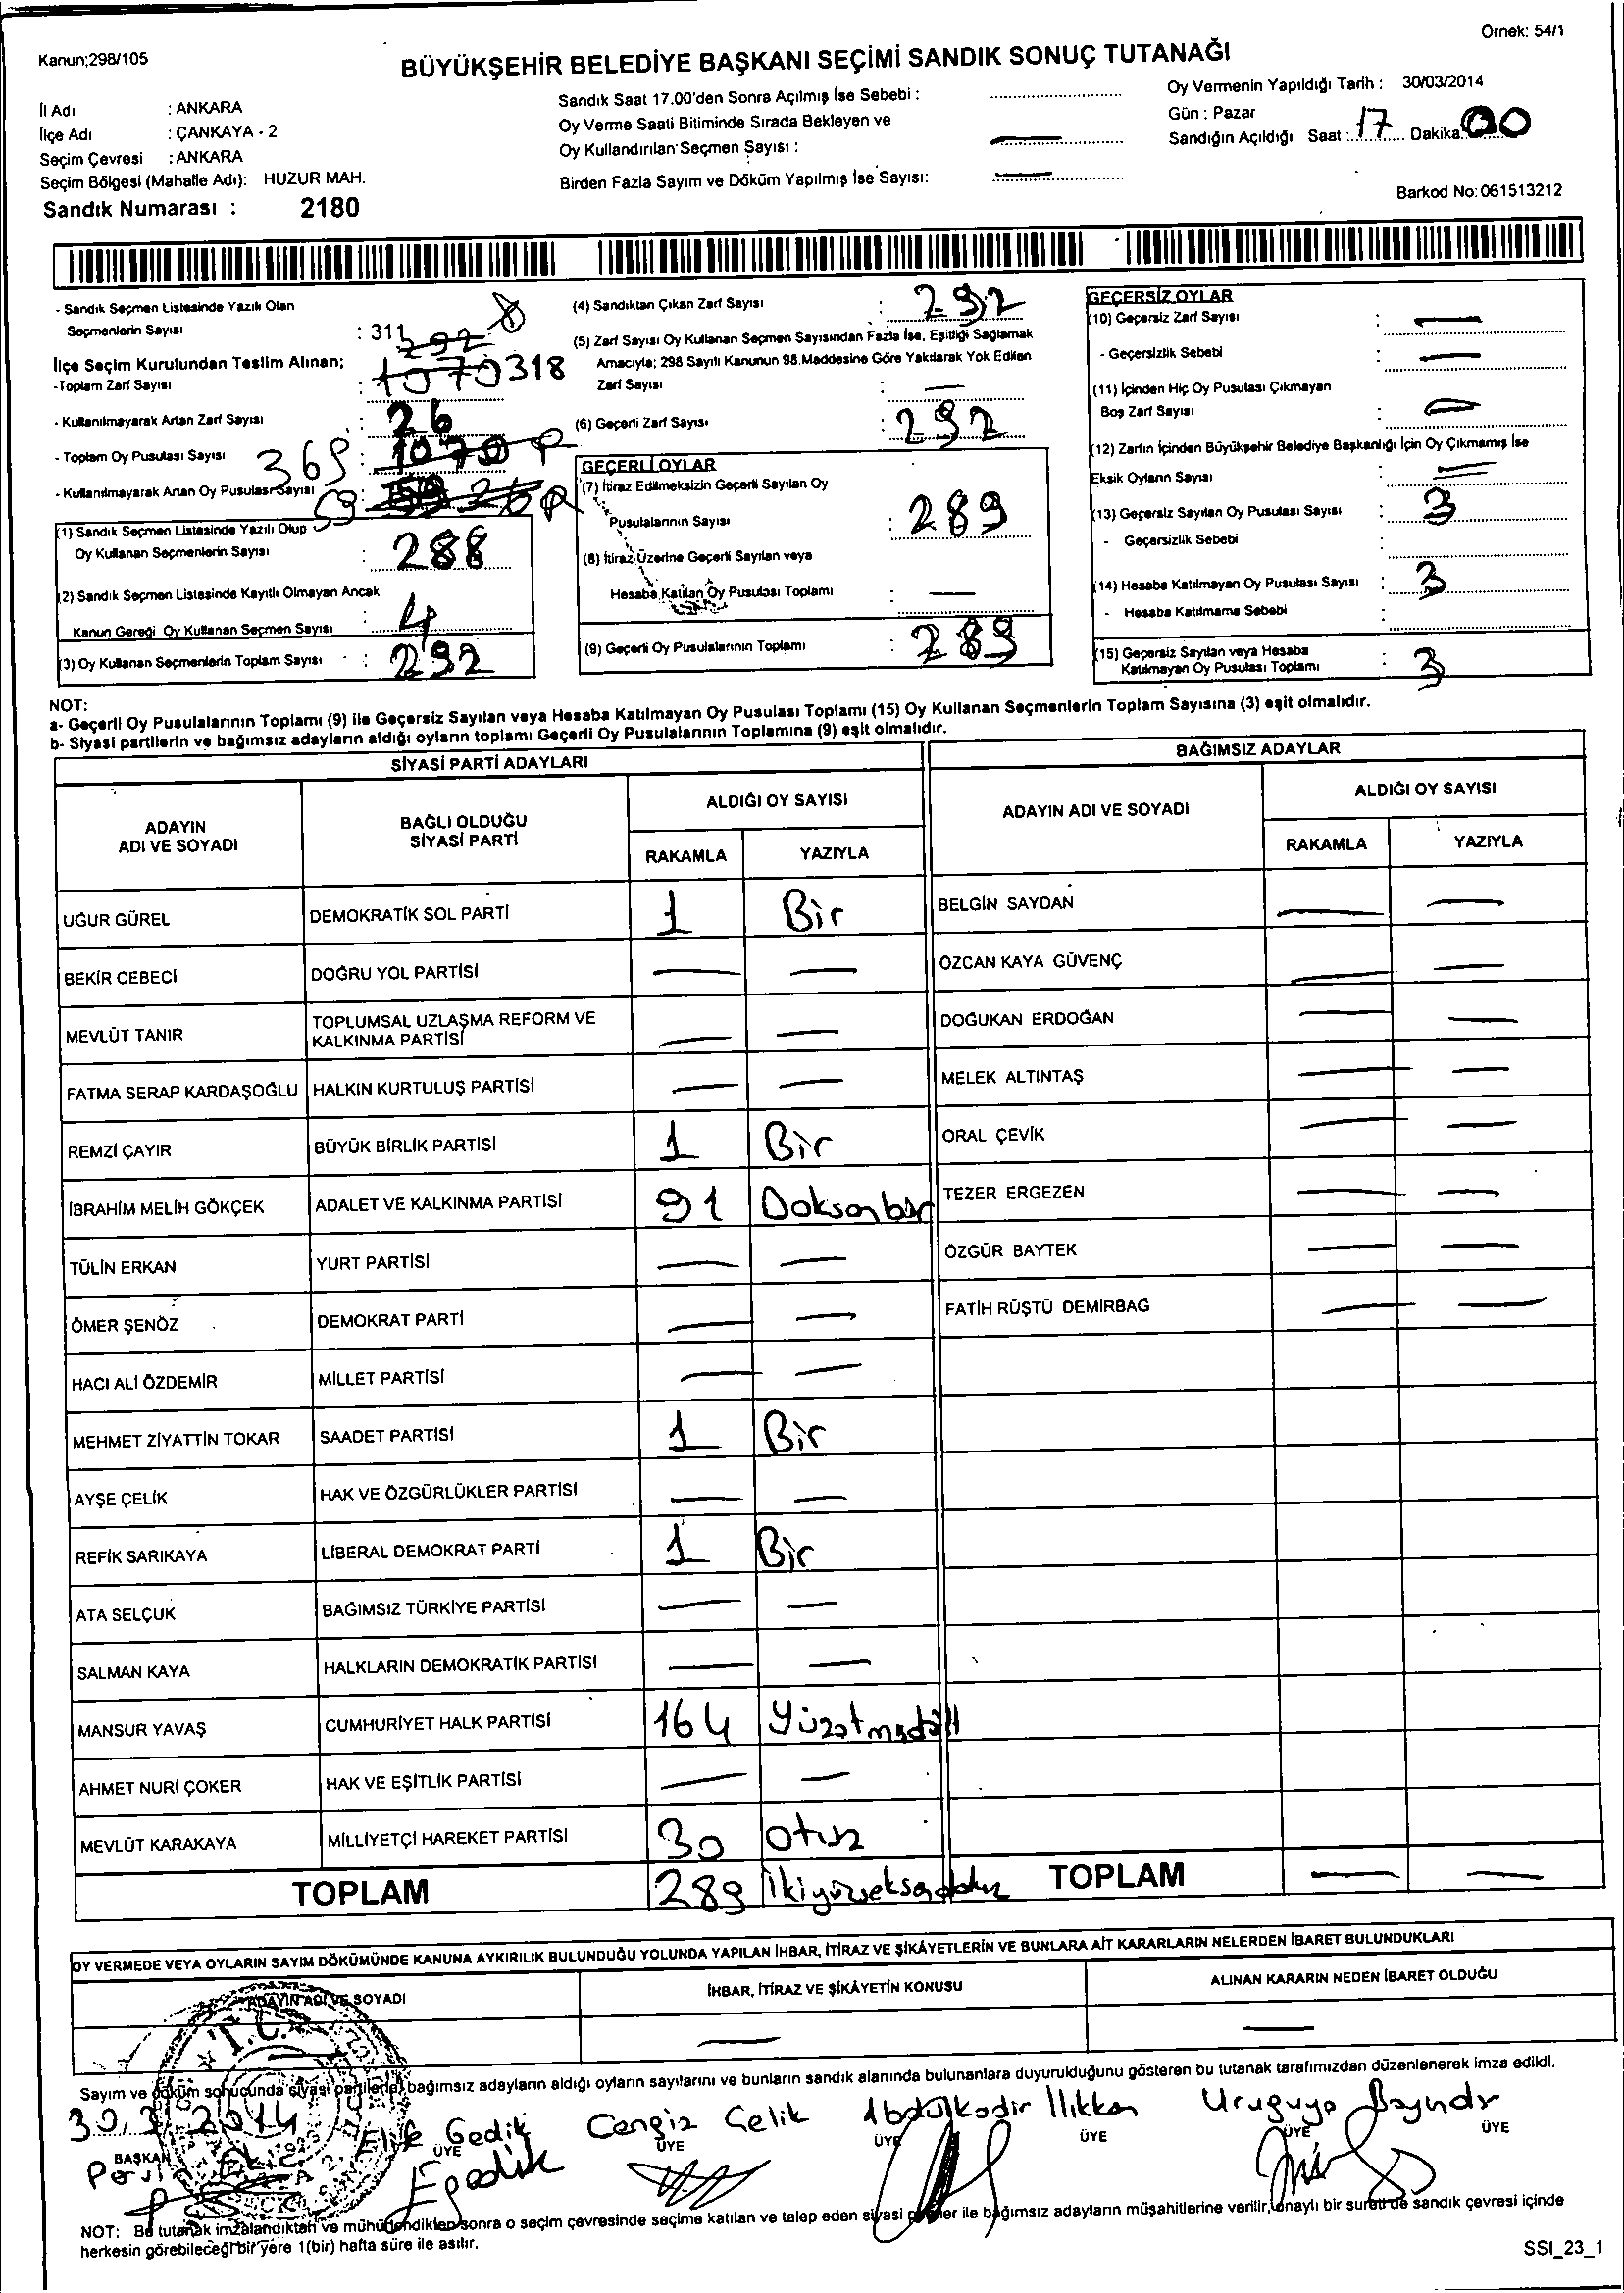 Örnek: 54/1
Kanun;298/105
BÜYÜKŞEHİR BELEDİYE BAŞKANI SEÇİMİ SANDIK SONUÇ TUTANAĞI
İl Adı : ANKARA
İlçe Adı : ÇANKAYA - 2
Seçim Çevresi : ANKARA
Seçim Bölgesi (Mahalle Adı): HUZUR MAH.
Sandık Numarası : 2180
Sandık Saat 17.00'den Sonra Açılmış İse Sebebi :
Oy Verme Saati Bitiminde Sırada Bekleyen ve
Oy Kullandırılan Seçmen Sayısı : —
Birden Fazla Sayım ve Döküm Yapılmış İse Sayısı: —
Oy Vermenin Yapıldığı Tarih : 30/03/2014
Gün : Pazar
Sandığın Açıldığı Saat : 17 Dakika: 00
Barkod No: 061513212
- Sandık Seçmen Listesinde Yazılı Olan
Seçmenlerin Sayısı : 311
292
İlçe Seçim Kurulundan Teslim Alınan;
-Toplam Zarf Sayısı : 1070 318
- Kullanılmayarak Artan Zarf Sayısı : 26
- Toplam Oy Pusulası Sayısı 365 : 1070
- Kullanılmayarak Artan Oy Pusulası Sayısı 59
(1) Sandık Seçmen Listesinde Yazılı Olup
Oy Kullanan Seçmenlerin Sayısı : 288
(2) Sandık Seçmen Listesinde Kayıtlı Olmayan Ancak
Kanun Gereği Oy Kullanan Seçmen Sayısı : 4
(3) Oy Kullanan Seçmenlerin Toplam Sayısı : 292
(4) Sandıktan Çıkan Zarf Sayısı : 292
(5) Zarf Sayısı Oy Kullanan Seçmen Sayısından Fazla İse, Eşitliği Sağlamak
Amacıyla; 298 Sayılı Kanunun 98.Maddesine Göre Yakılarak Yok Edilen
Zarf Sayısı : —
(6) Geçerli Zarf Sayısı : 292
GEÇERLİ OYLAR
(7) İtiraz Edilmeksizin Geçerli Sayılan Oy
Pusulalarının Sayısı : 289
(8) İtiraz Üzerine Geçerli Sayılan veya
Hesaba Katılan Oy Pusulası Toplamı : —
(9) Geçerli Oy Pusulalarının Toplamı : 289
GEÇERSİZ OYLAR
(10) Geçersiz Zarf Sayısı : —
- Geçersizlik Sebebi : —
(11) İçinden Hiç Oy Pusulası Çıkmayan
Boş Zarf Sayısı : —
(12) Zarfın İçinden Büyükşehir Belediye Başkanlığı İçin Oy Çıkmamış İse
Eksik Oyların Sayısı : —
(13) Geçersiz Sayılan Oy Pusulası Sayısı : 3
- Geçersizlik Sebebi :
(14) Hesaba Katılmayan Oy Pusulası Sayısı : 3
- Hesaba Katılmama Sebebi :
(15) Geçersiz Sayılan veya Hesaba
Katılmayan Oy Pusulası Toplamı : 3
NOT:
a- Geçerli Oy Pusulalarının Toplamı (9) ile Geçersiz Sayılan veya Hesaba Katılmayan Oy Pusulası Toplamı (15) Oy Kullanan Seçmenlerin Toplam Sayısına (3) eşit olmalıdır.
b- Siyasi partilerin ve bağımsız adayların aldığı oyların toplamı Geçerli Oy Pusulalarının Toplamına (9) eşit olmalıdır.
SİYASİ PARTİ ADAYLARI
ADAYIN ADI VE SOYADI BAĞLI OLDUĞU SİYASİ PARTİ ALDIĞI OY SAYISI
RAKAMLA YAZIYLA
UĞUR GÜREL DEMOKRATİK SOL PARTİ 1 Bir
BEKİR CEBECİ DOĞRU YOL PARTİSİ — —
MEVLÜT TANIR TOPLUMSAL UZLAŞMA REFORM VE KALKINMA PARTİSİ — —
FATMA SERAP KARDAŞOĞLU HALKIN KURTULUŞ PARTİSİ — —
REMZİ ÇAYIR BÜYÜK BİRLİK PARTİSİ 1 Bir
İBRAHİM MELİH GÖKÇEK ADALET VE KALKINMA PARTİSİ 91 Doksanbir
TÜLİN ERKAN YURT PARTİSİ — —
ÖMER ŞENÖZ DEMOKRAT PARTİ — —
HACI ALİ ÖZDEMİR MİLLET PARTİSİ — —
MEHMET ZİYATTİN TOKAR SAADET PARTİSİ 1 Bir
AYŞE ÇELİK HAK VE ÖZGÜRLÜKLER PARTİSİ — —
REFİK SARIKAYA LİBERAL DEMOKRAT PARTİ 1 Bir
ATA SELÇUK BAĞIMSIZ TÜRKİYE PARTİSİ — —
SALMAN KAYA HALKLARIN DEMOKRATİK PARTİSİ — —
MANSUR YAVAŞ CUMHURİYET HALK PARTİSİ 164 Yüzatmışdört
AHMET NURİ ÇOKER HAK VE EŞİTLİK PARTİSİ — —
MEVLÜT KARAKAYA MİLLİYETÇİ HAREKET PARTİSİ 30 Otuz
TOPLAM 289 İkiyüzseksendokuz
BAĞIMSIZ ADAYLAR
ADAYIN ADI VE SOYADI ALDIĞI OY SAYISI
RAKAMLA YAZIYLA
BELGİN SAYDAN — —
ÖZCAN KAYA GÜVENÇ — —
DOĞUKAN ERDOĞAN — —
MELEK ALTINTAŞ — —
ORAL ÇEVİK — —
TEZER ERGEZEN — —
ÖZGÜR BAYTEK — —
FATİH RÜŞTÜ DEMİRBAĞ — —
TOPLAM — —
OY VERMEDE VEYA OYLARIN SAYIM DÖKÜMÜNDE KANUNA AYKIRILIK BULUNDUĞU YOLUNDA YAPILAN İHBAR, İTİRAZ VE ŞİKÂYETLERİN VE BUNLARA AİT KARARLARIN NELERDEN İBARET BULUNDUKLARI
ADAYIN ADI VE SOYADI İHBAR, İTİRAZ VE ŞİKÂYETİN KONUSU ALINAN KARARIN NEDEN İBARET OLDUĞU
— —
T.C.
Sayım ve döküm sonucunda siyasi partilerle, bağımsız adayların aldığı oyların sayılarını ve bunların sandık alanında bulunanlara duyurulduğunu gösteren bu tutanak tarafımızdan düzenlenerek imza edildi.
30.3.2014
Elife Gedik Cengiz Çelik Abdulkadir İlikkan Uruguya Bayındır
BAŞKAN ÜYE ÜYE ÜYE ÜYE ÜYE ÜYE
Egedik
NOT: Bu tutanak imzalandıktan ve mühürlendikten sonra o seçim çevresinde seçime katılan ve talep eden siyasi partiler ile bağımsız adayların müşahitlerine verilir, onaylı bir sureti de sandık çevresi içinde
herkesin görebileceği bir yere 1(bir) hafta süre ile asılır.
SSI_23_1